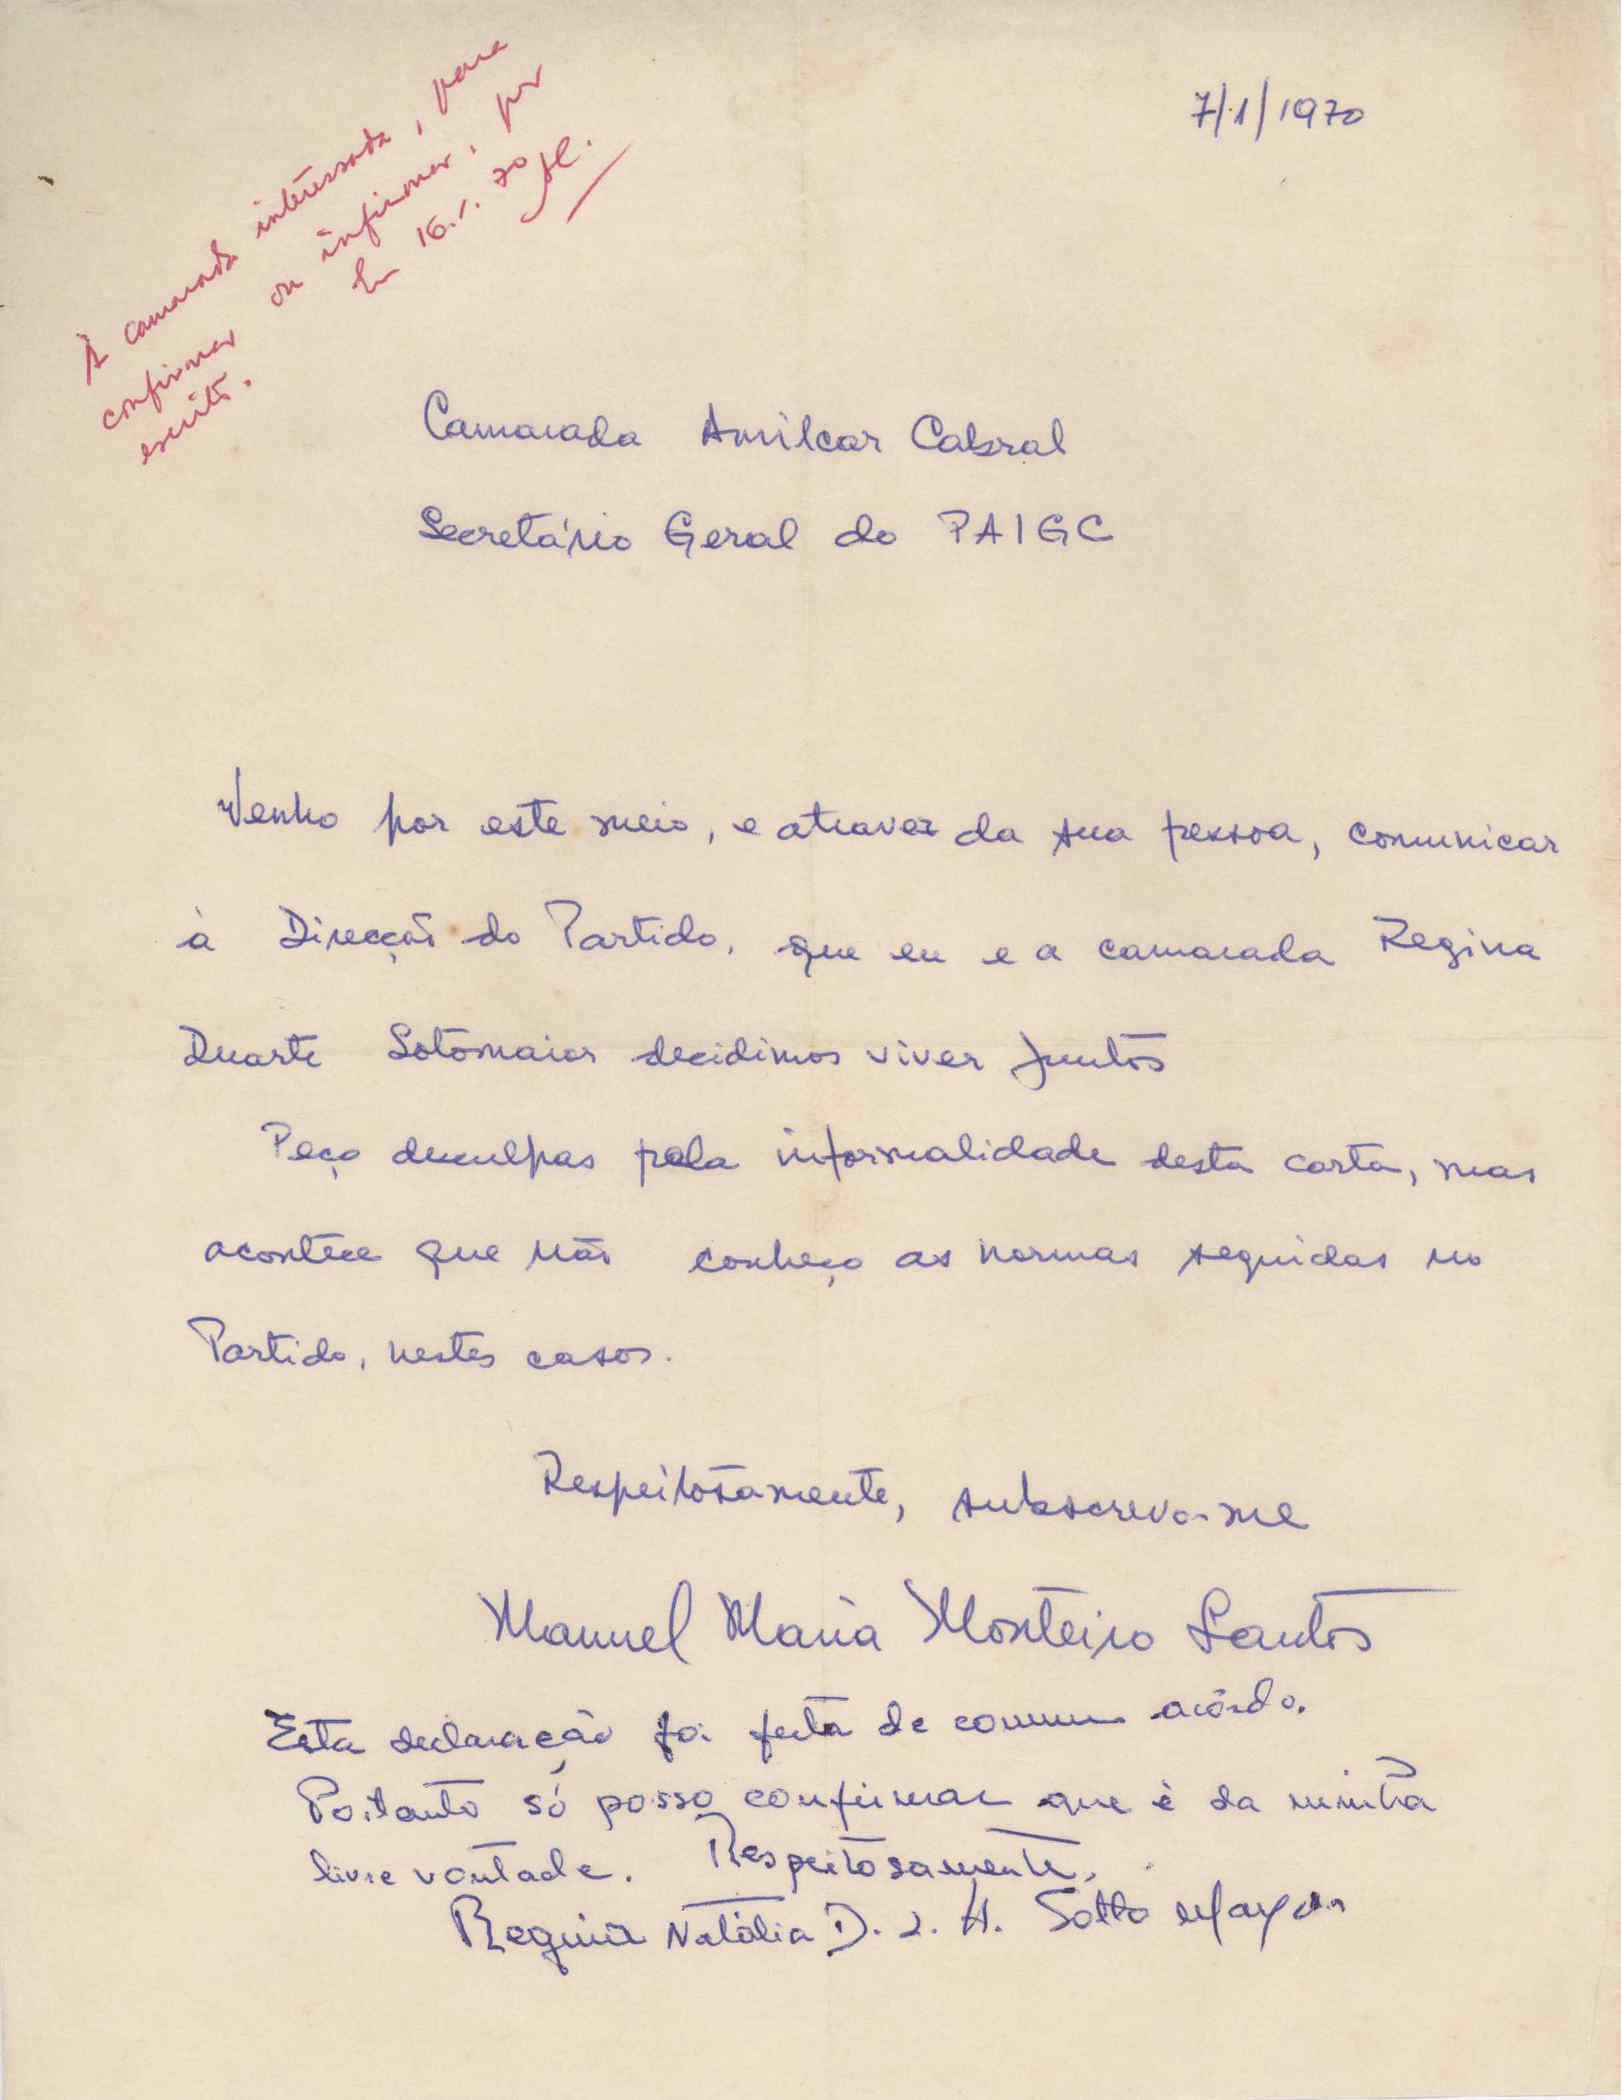 7/1/1970
À camarada interessada, para
confirmar ou infirmar, por
escrito. Em 16.1.70
Camarada Amilcar Cabral
Secretário Geral do PAIGC
Venho por este meio, e atravez da sua pessoa, comunicar
à Direcção do Partido, que eu e a camarada Regina
Duarte Sotomaior decidimos viver juntos
Peço desculpas pela informalidade desta carta, mas
acontece que não conheço as normas seguidas no
Partido, nestes casos.
Respeitosamente, subscrevo-me
Manuel Maria Monteiro Santos
Esta declaração foi feita de comum acôrdo.
Portanto só posso confirmar que é da minha
livre vontade. Respeitosamente,
Regina Natália D. S. A. Sotto Mayor